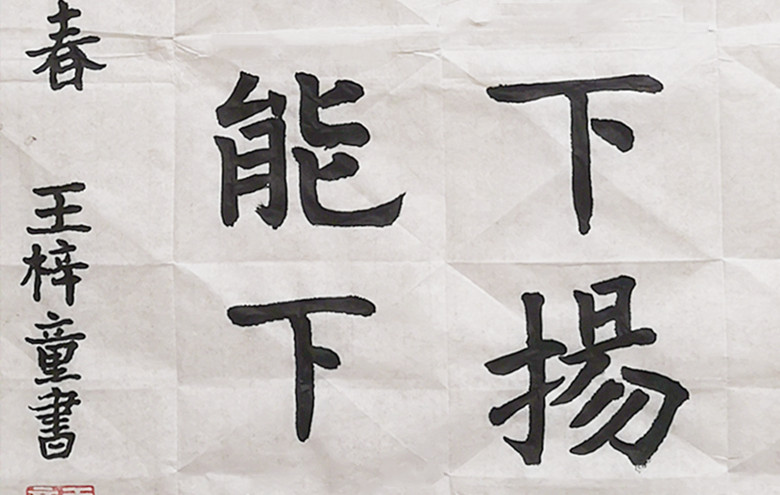 下揚
能下
春 王梓童書